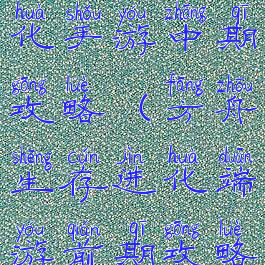 huà shǒu yóu zhōng qī
化手游中期
gōng lüè （ fāng zhōu
攻略（方舟
shēng cún jìn huà duān
生存进化端
yóu qián qī gōng lüè
游前期攻略